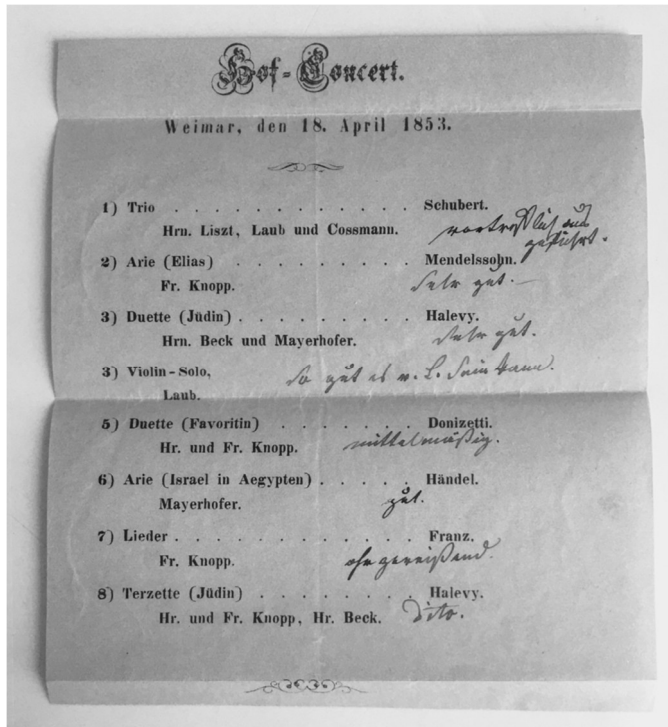 Hof-Concert.
Weimar, den 18. April 1853.
1) Trio . . . . . . . . . . . . . Schubert.
Hrn. Liszt, Laub und Cossmann. vortrefflich aus
geführt.
2) Arie (Elias) . . . . . . . . . Mendelssohn.
Fr. Knopp. Sehr gut.
3) Duette (Jüdin) . . . . . . . . . Halevy.
Hrn. Beck und Mayerhofer. Sehr gut.
3) Violin-Solo, So gut es v. L. sein kann.
Laub.
5) Duette (Favoritin) . . . . . . . Donizetti.
Hr. und Fr. Knopp. mittelmäßig.
6) Arie (Israel in Aegypten) . . . . . Händel.
Mayerhofer. gut.
7) Lieder . . . . . . . . . . . . . Franz.
Fr. Knopp. ohrzerreißend.
8) Terzette (Jüdin) . . . . . . . . Halevy.
Hr. und Fr. Knopp, Hr. Beck. Dito.